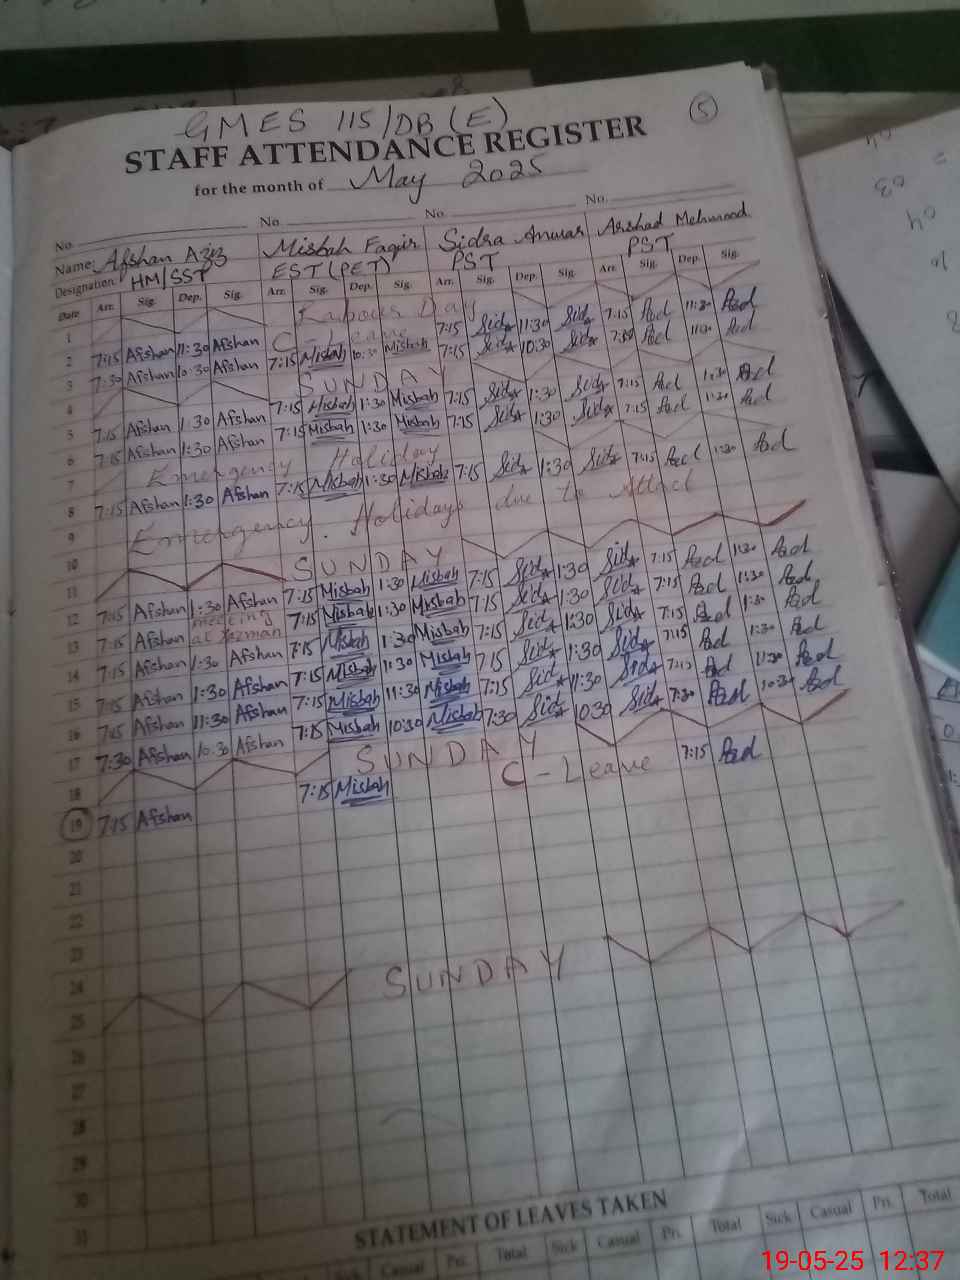 GMES 115/DB (E)
5
STAFF ATTENDANCE REGISTER
for the month of May 2025
No. No. No. No.
Name: Afshan Aziz Misbah Faqir Sidra Anwar Arshad Mehmood
Designation: HM/SST EST (PET) PST PST
Date Arr. Sig. Dep. Sig. Arr. Sig. Dep. Sig. Arr. Sig. Dep. Sig. Arr. Sig. Dep. Sig.
1 Labour Day
2 7:15 Afshan 11:30 Afshan C-Leave 7:15 Sidra 11:30 Sidra 7:15 11:30
3 7:30 Afshan 10:30 Afshan 7:15 Misbah 10:30 Misbah 7:15 Sidra 10:30 Sidra
4 SUNDAY
5 7:15 Afshan 1:30 Afshan 7:15 Misbah 1:30 Misbah 7:15 Sidra 1:30 Sidra 7:15 1:30
6 7:15 Afshan 1:30 Afshan 7:15 Misbah 1:30 Misbah 7:15 Sidra 1:30 Sidra 7:15 1:30
7 Emergency Holiday
8 7:15 Afshan 1:30 Afshan 7:15 Misbah 1:30 Misbah 7:15 Sidra 1:30 Sidra 7:15 1:30
9 Emergency Holidays due to Attack
10
11 SUNDAY
12 7:15 Afshan 1:30 Afshan 7:15 Misbah 1:30 Misbah 7:15 Sidra 1:30 Sidra 7:15 1:30
13 7:15 Afshan meeting at Yazman 7:15 Misbah 1:30 Misbah 7:15 Sidra 1:30 Sidra 7:15 1:30
14 7:15 Afshan 1:30 Afshan 7:15 Misbah 1:30 Misbah 7:15 Sidra 1:30 Sidra 7:15 1:30
15 7:15 Afshan 11:30 Afshan 7:15 Misbah 11:30 Misbah 7:15 Sidra 1:30 Sidra 7:15 1:30
16 7:15 Afshan 11:30 Afshan 7:15 Misbah 11:30 Misbah 7:15 Sidra 11:30 Sidra 7:15 11:30
17 7:30 Afshan 10:30 Afshan 7:15 Misbah 10:30 Misbah 7:30 Sidra 10:30 Sidra 7:30 10:30
18 SUNDAY
19 7:15 Afshan 7:15 Misbah C-Leave 7:15
20
21
22
23
24
25 SUNDAY
26
27
28
29
30
31
STATEMENT OF LEAVES TAKEN
Sick Casual Pri. Total Sick Casual Pri. Total Sick Casual Pri. Total
19-05-25 12:37